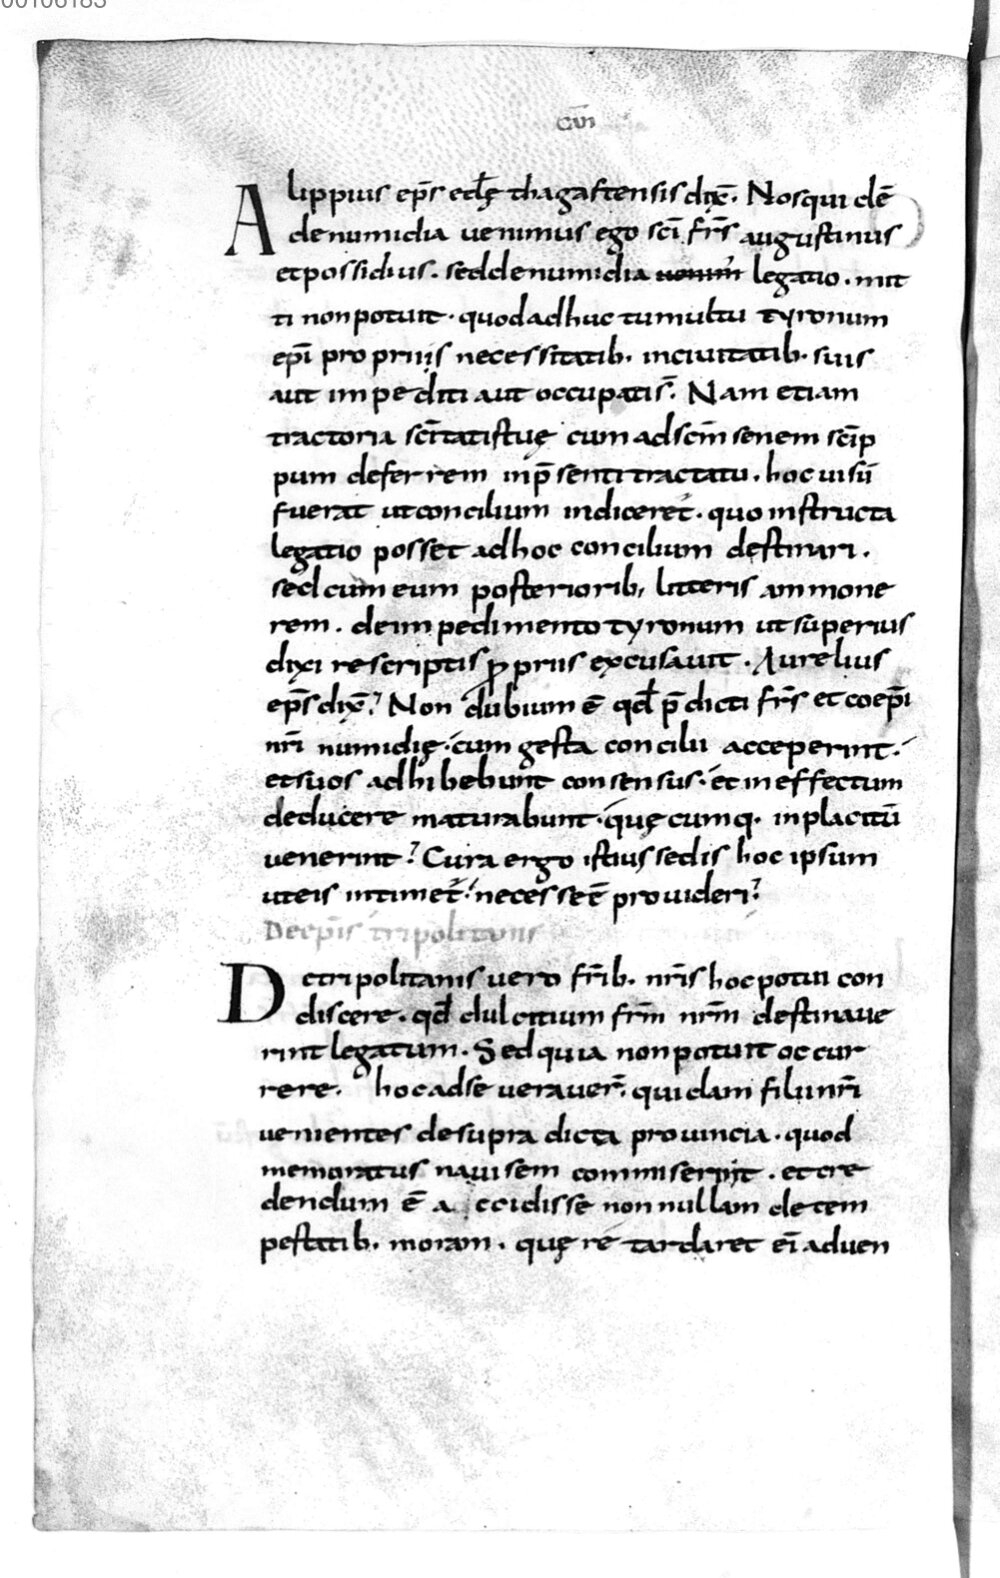 00106183
CVII
Alippius ep̄s eccl̄ę thagastensis dix̄. Nos qui dē
de numidia uenimus ego sc̄i fr̄s augustinus
et possidius. sed de numidia legatio. mit
ti non potuit. quod adhuc tumultu tyronum
ep̄i propriis necessitatib. inciuitatib. suis
aut impediti aut occupatis̄. Nam etiam
tractoria sc̄itatis tuę cum ad sc̄m senem sc̄ip
pum deferrem in p̄senti tractatu. hoc uisū
fuerat ut concilium indiceret. quo instructa
legatio posset ad hoc concilium destinari.
sed cum eum posteriorib, litteris ammone
rem. de impedimento tyronum ut superius
dixi rescriptis ꝓpriis excusauit. Aurelius
ep̄s dix̄. Non dubium ē qd̄ p̄dicti fr̄s et coep̄i
nr̄i numidię. cum gesta concilii acceperint.
et suos adhibebunt consensus. et in effectum
deducere maturabunt. quęcumq. in placitū
uenerint. Cura ergo istius sedis hoc ipsum
ut eis intimet. necesse ē prouideri.
De ep̄is tripolitanis
De tripolitanis uero fr̄ib. nr̄is hoc potui con
discere. qd̄ dulcitium fr̄m nr̄m destinaue
rint legatum. Sed quia non potuit occur
rere. hoc adseuerauer̄. quidam filii nr̄i
uenientes de supra dicta prouincia. quod
memoratus nauisem commiserint. et cre
dendum ē accidisse non nullam de tem
pestatib. moram. quę re tardaret ei aduen